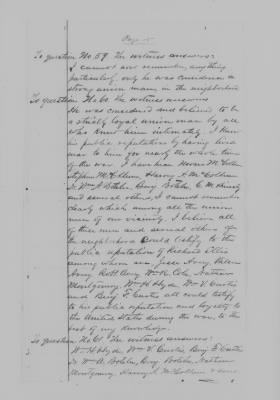 Page 5
To question No. 59 The witness answers:
I cannot now remember anything
particularly, only he was considered a
strong union man, in the neighborhood
To question No. 60. The witness answers
He was considered and believed to be
a strictly loyal union man by all
who knew him intimately. I knew
his public reputation by having lived
near to him you nearly the whole time
of the war. I have heard
Stephen McCollum, Harvey J. McCollum
Dr Wm H. Botelor, Benj Botelor,
and several others, I cannot remember
clearly which among all the union
men of our vicinity. I believe all
of these men and several others of
the neighborhood could testify to the
public reputation of Richard
among whom are, Jesse Avey, Allen
Avey Robt Avey Wm K. Cole, Nathan
Montgomery, Wm H Hyde, Wm V. Curtis
and Benj F. Curtis all could testify
to his public reputation and loyalty to
the United States during the war, to the
best of my knowledge.
To question No. 61. The witness answers:
Wm H Hyde Wm V. Curtis, Benj F Curtis
Dr Wm H. Botelor, Benj Botelor, Nathan
Montgomery, Harvey J. McCollum